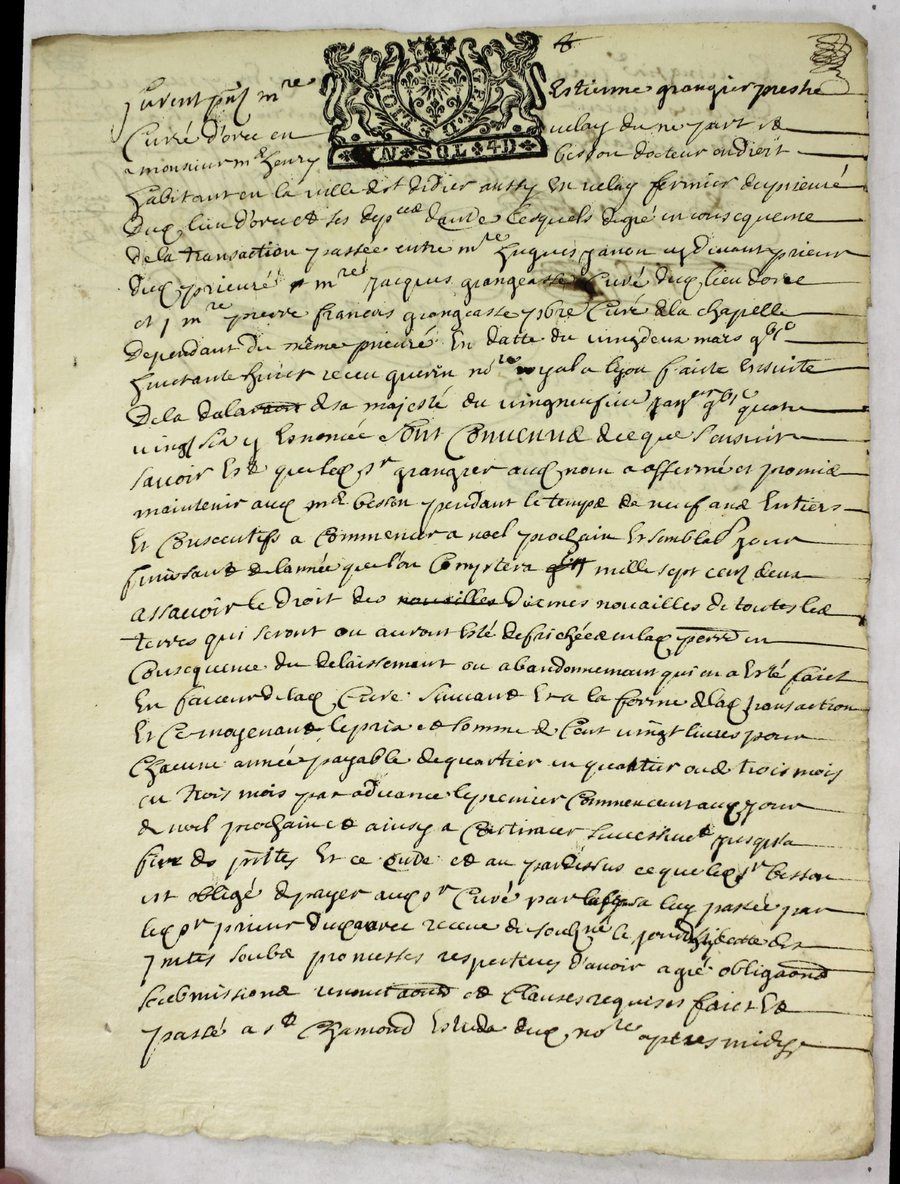 GEN·D·LION
VN·SOL·4D
furent pnts mre Estienne grangier prestre
Curé d'orec en velay du ne part et
monsieur mr henry besson docteur en droit
habitant en la ville de st didier aussy En velay fermier du prieuré
duq lieu d'orec et ses depces dautre lesquels de gré en consequence
de la transaction passée entre mre hugues janon cy devant prieur
duq prieuré mre jacques grangeasse Curé duq lieu dorec
et mre pierre francois grangeasse pbre Curé de la chapelle
dependant du même prieuré En datte du vingdeux mars
huictante huict receu guerin nore royal a lyon faicte Ensuite
De la de sa majesté du vingneufvie quatre
vingt six y Esnoncée sont Convenus de ce que sensuit
savoir Est que leq sr grangier auq nom a affermé et promis
maintenir auq mr besson pendant le temps de neuf ans Entiers
Et Consecutifs a Commencer a noel prochain Et semblab jour
finissant de lannée que l'on Comptera mille sept cent deux
assavoir le droit des novailles diesmes novailles de toutes les
terres qui seront ou auront Esté defrichées en laq perre en
Consequence du delaissement ou abandonnement qui en a Esté faict
En faveur de laq Cure suivant Et a la forme de laq transaction
Et Ce moyenant le prix et somme de Cent vingt livres pour
Chacune année payable de quartier en quartier ou de trois mois
en trois mois par advance le premier Commencant auq jour
de noel prochain et ainsy a Continuer successivet jusqu'a
fin des pntes Et ce outre et au pardessus ce que leq sr besson
est obligé de payer auq sr Curé par a luy passée par
leq sr prieur duq orec receue du soubzné le jour
pntes soubs promesses respectives d'avoir agré obligaons
soubmissions renontaons et Clauses requises faict Et
passé a st Chamond Estude duq nore apres midy